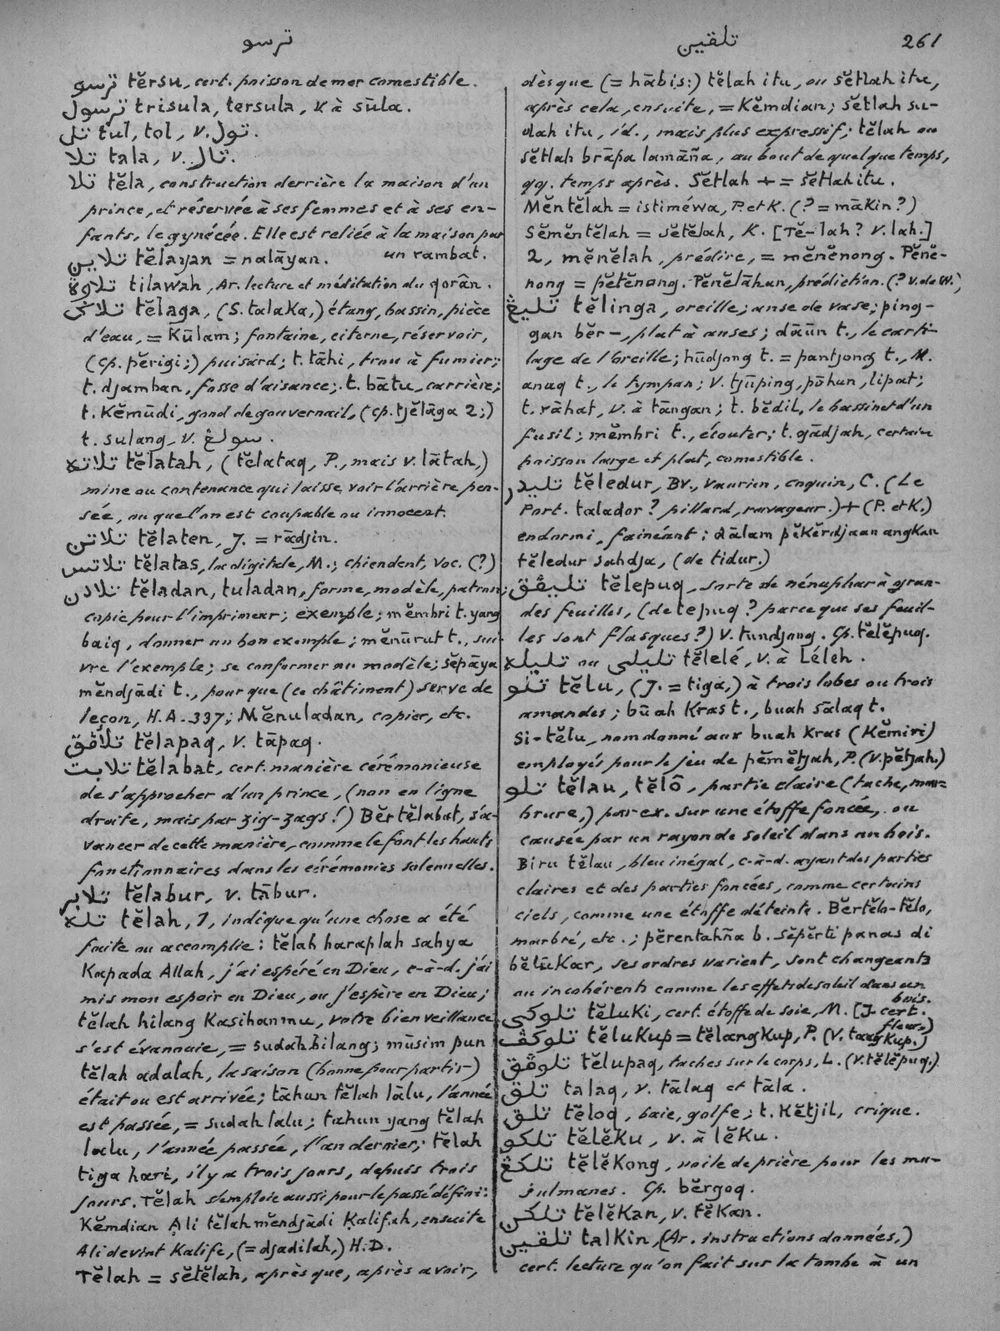 ترسو
تلقين 261
ترسو tĕrsu, cert. poisson de mer comestible.
ترسول trisula, tersula, v. à sūla.
تل tul, tol, v. تول.
تلا tala, v. تال.
تلا tĕla, construction derrière la maison d'un
prince, et réservée à ses femmes et à ses en-
fants, le gynécée. Elle est reliée à la maison par
un rambat.
تلاين tĕlayan = nalāyan.
تلاوة tilawah, Ar. lecture et méditation du qorân.
تلاݢ tĕlaga, (S. talaka,) étang, bassin, pièce
d'eau, = Kūlam; fontaine, citerne, réservoir,
(cp. pĕrigi;) puisard; t. tāhi, trou à fumier;
t. djamban, fosse d'aisance; t. bātu, carrière;
t. Kĕmūdi, gond de gouvernail, (cp. tjĕlāga 2;)
t. sulang, v. سولڠ.
تلاته tĕlatah, (tĕlataq, P., mais v. lātah,)
mine ou contenance qui laisse voir l'arrière pen-
sée, ou que l'on est coupable ou innocent.
تلاتن tĕlaten, J. = rādjin.
تلاتس tĕlatas, la digitale, M.; chiendent, Voc. (?)
تلادن tĕladan, tuladan, forme, modèle, patron;
copie pour l'imprimeur; exemple; mĕmbri t. yang
baiq, donner un bon exemple; mĕnūrut t., sui-
vre l'exemple; se conformer au modèle; sĕpāya
mĕndjādi t., pour que (ce châtiment) serve de
leçon, H.A. 337; Mĕnuladan, copier, etc.
تلاڤق tĕlapaq, v. tāpaq.
تلابت tĕlabat, cert. manière cérémonieuse
de s'approcher d'un prince, (non en ligne
droite, mais par zig-zags!) Bĕrtĕlabat, s'a-
vancer de cette manière, comme le font les hauts
fonctionnaires dans les cérémonies solennelles.
تلابر tĕlabur, v. tābur.
تله tĕlah, 1, indique qu'une chose a été
faite ou accomplie: tĕlah haraplah sahya
Kapada Allah, j'ai espéré en Dieu, c-à-d. j'ai
mis mon espoir en Dieu, ou j'espère en Dieu;
tĕlah hilang Kasihanmu, votre bienveillance
s'est évanouie, = sudah hilang; mūsim pun
tĕlah adalah, la saison (bonne pour partir)
était ou est arrivée; tāhun tĕlah lālu, l'année
est passée, = sudah lalu; tahun yang tĕlah
lalu, l'année passée, l'an dernier; tĕlah
tiga hari, il y a trois jours, depuis trois
jours. Tĕlah s'emploie aussi pour le passé défini:
Kĕmdian Ali tĕlah mĕndjādi Kalifah, ensuite
Ali devint Kalife, (= djadilah,) H.D.
Tĕlah = sĕtĕlah, après que, après avoir,
dès que (= hābis;) tĕlah itu, ou sĕtlah itu,
après cela, ensuite, = Kĕmdian; sĕtlah su-
dah itu, id., mais plus expressif; tĕlah ou
sĕtlah brāpa lamāña, au bout de quelque temps,
qq. temps après. Sĕtlah + = sĕtlah itu.
Mĕntĕlah = istiméwa, P. et K. (? = mākin?)
Sĕmĕntĕlah = sĕtĕlah, K. [Tĕ-lah? v. lah.]
2, mĕnĕlah, prédire, = mĕnĕnong. Pĕnĕ-
nong = pĕtĕnong. Pĕnĕlāhan, prédiction. (? v. de W.)
تليڠ tĕlinga, oreille; anse de vase; ping-
gan bĕr-, plat à anses; dāün t., le carti-
lage de l'oreille; hūdjong t. = pantjong t., M.
anaq t., le tympan; V. tjūping, pōhun, lipat;
t. rāhat, v. à tāngan; t. bĕdil, le bassinet d'un
fusil; mĕmbri t., écouter; t. gādjah, certain
poisson large et plat, comestible.
تليدر tĕledur, Bv., vaurien, coquin, C. (Le
Port. talador? pillard, ravageur.) + (P. et K.)
endormi, fainéant; dālam pĕkĕrdjaan angkan
tĕledur sahdja, (de tidur.)
تليڤق tĕlepuq, sorte de nénuphar à gran-
des feuilles, (de tepuq? parce que ses feuil-
les sont flasques?) V. tundjong. Cp. tĕlĕpuq.
تليله ou تليلى tĕlelé, v. à Léleh.
تلو tĕlu, (J. = tiga,) à trois lobes ou trois
amandes; būah Kras t., buah sālaq t.
Si-tĕlu, nom donné aux buah Kras (Kĕmiri)
employés pour le jeu de pĕmĕtjah, P. (v. pĕtjah.)
تلو tĕlau, tĕlô, partie claire (tache, mar-
brure,) par ex. sur une étoffe foncée, ou
causée par un rayon de soleil dans un bois.
Biru tĕlau, bleu inégal, c-à-d. ayant des parties
claires et des parties foncées, comme certains
ciels, comme une étoffe déteinte. Bĕrtĕlo-tĕlo,
marbré, etc.; pĕrentahña b. sĕpĕrti panas di
bĕlūkar, ses ordres varient, sont changeants
ou incohérents comme les effets de soleil dans un
bois.
تلوكى tĕluki, cert. étoffe de soie, M. [J. cert.
fleur.)
تلوكڤ tĕlukup = tĕlangkup, P. (v. tangkup.)
تلوڤق tĕlupaq, taches sur le corps, L. (v. tĕlĕpuq.)
تلق talaq, v. tālaq et tāla.
تلق tĕloq, baie, golfe; t. Kĕtjil, crique.
تلكو tĕlĕku, v. à lĕku.
تلكڠ tĕlĕkong, voile de prière pour les mu-
sulmanes. Cp. bĕrgoq.
تلكن tĕlĕkan, v. tĕkan.
تلقين talkin, (Ar. instructions données,)
cert. lecture qu'on fait sur la tombe à un